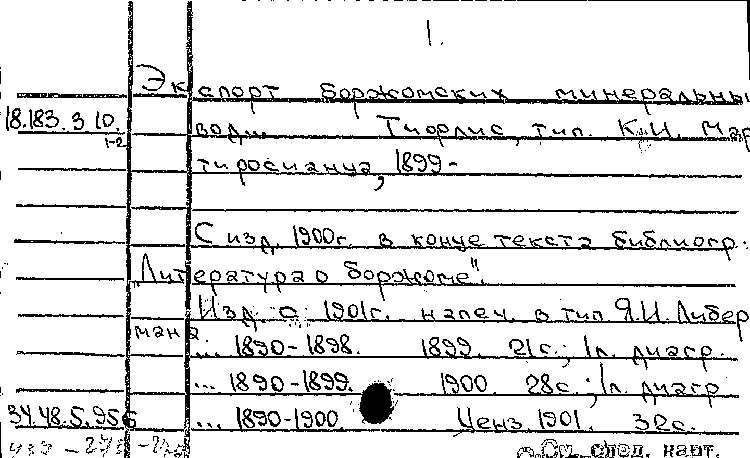 1.
Экспорт боржомских минеральны
18.183.3.10. вод... Тифлис, тип. К.И. Мар
1-2
тиросианца, 1899-
С изд. 1900г. в конце текста библиогр.:
"Литература о Боржоме".
Изд. с 1901г. напеч. в тип Я.И. Либер
мана
... 1890-1898. 1899. 21с.; 1л. диагр.
... 1890-1899. 1900. 28с.; 1л. диагр
34.48.5.956 ... 1890-1900. Ценз. 1901. 32с.
См. след. карт.